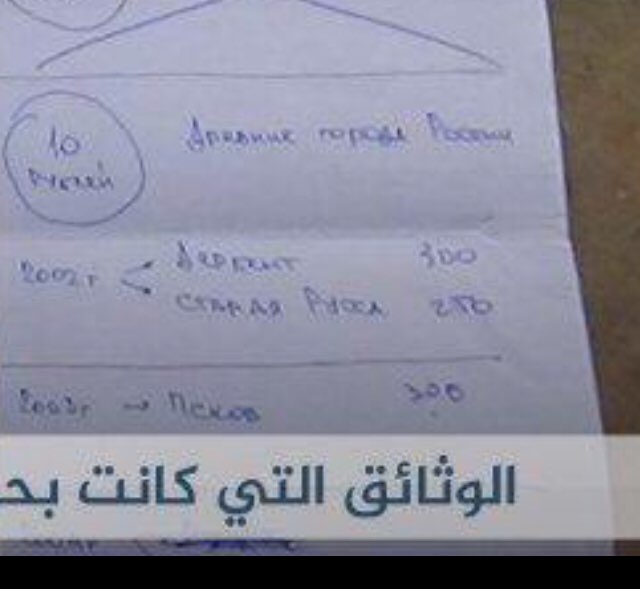 10 рублей Древние города России
2002г Дербент 300
Старая Русса 250
2003г → Псков 300
الوثائق التي كانت بح